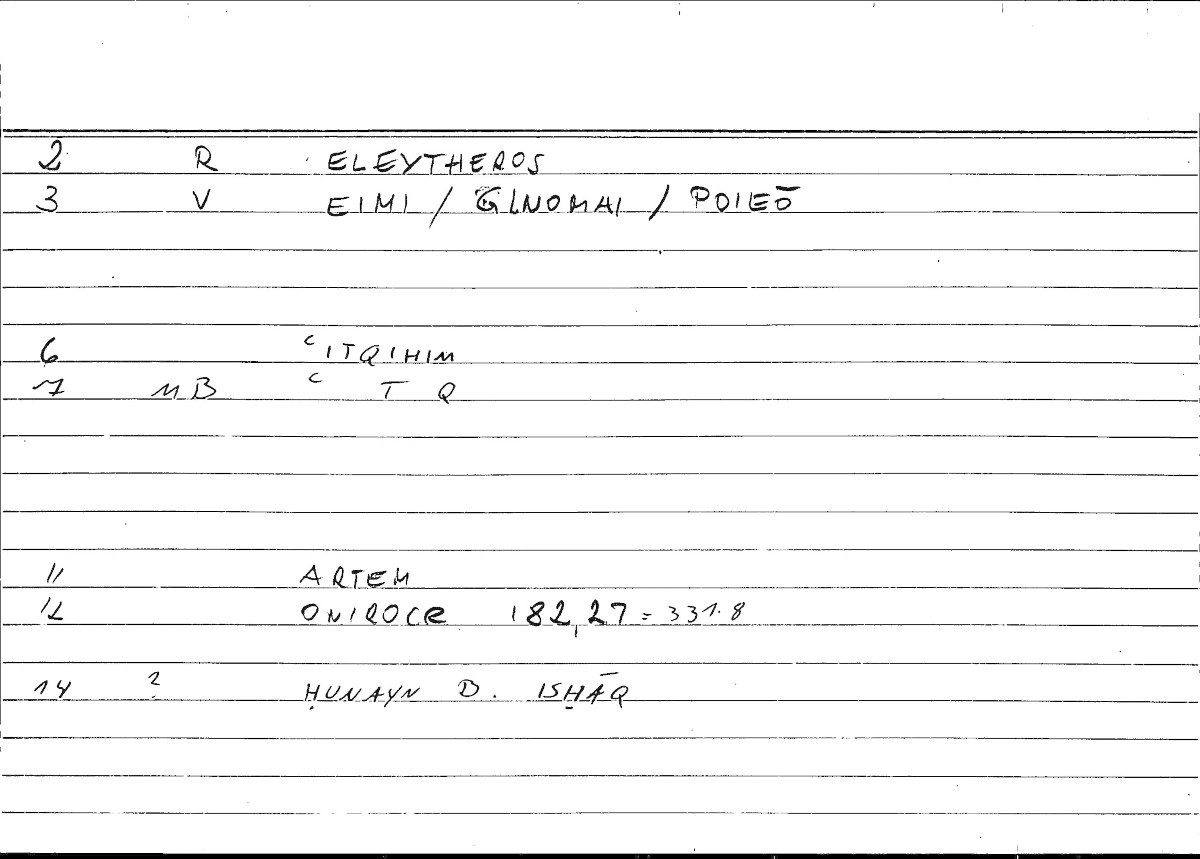 2 R ELEYTHEROS
3 V EIMI / GINOMAI / POIEŌ
6 ʿITQIHIM
7 MB ʿ T Q
11 ARTEM
12 ONIROCR 182,27 = 331.8
14 ? ḤUNAYN B. ISḤĀQ